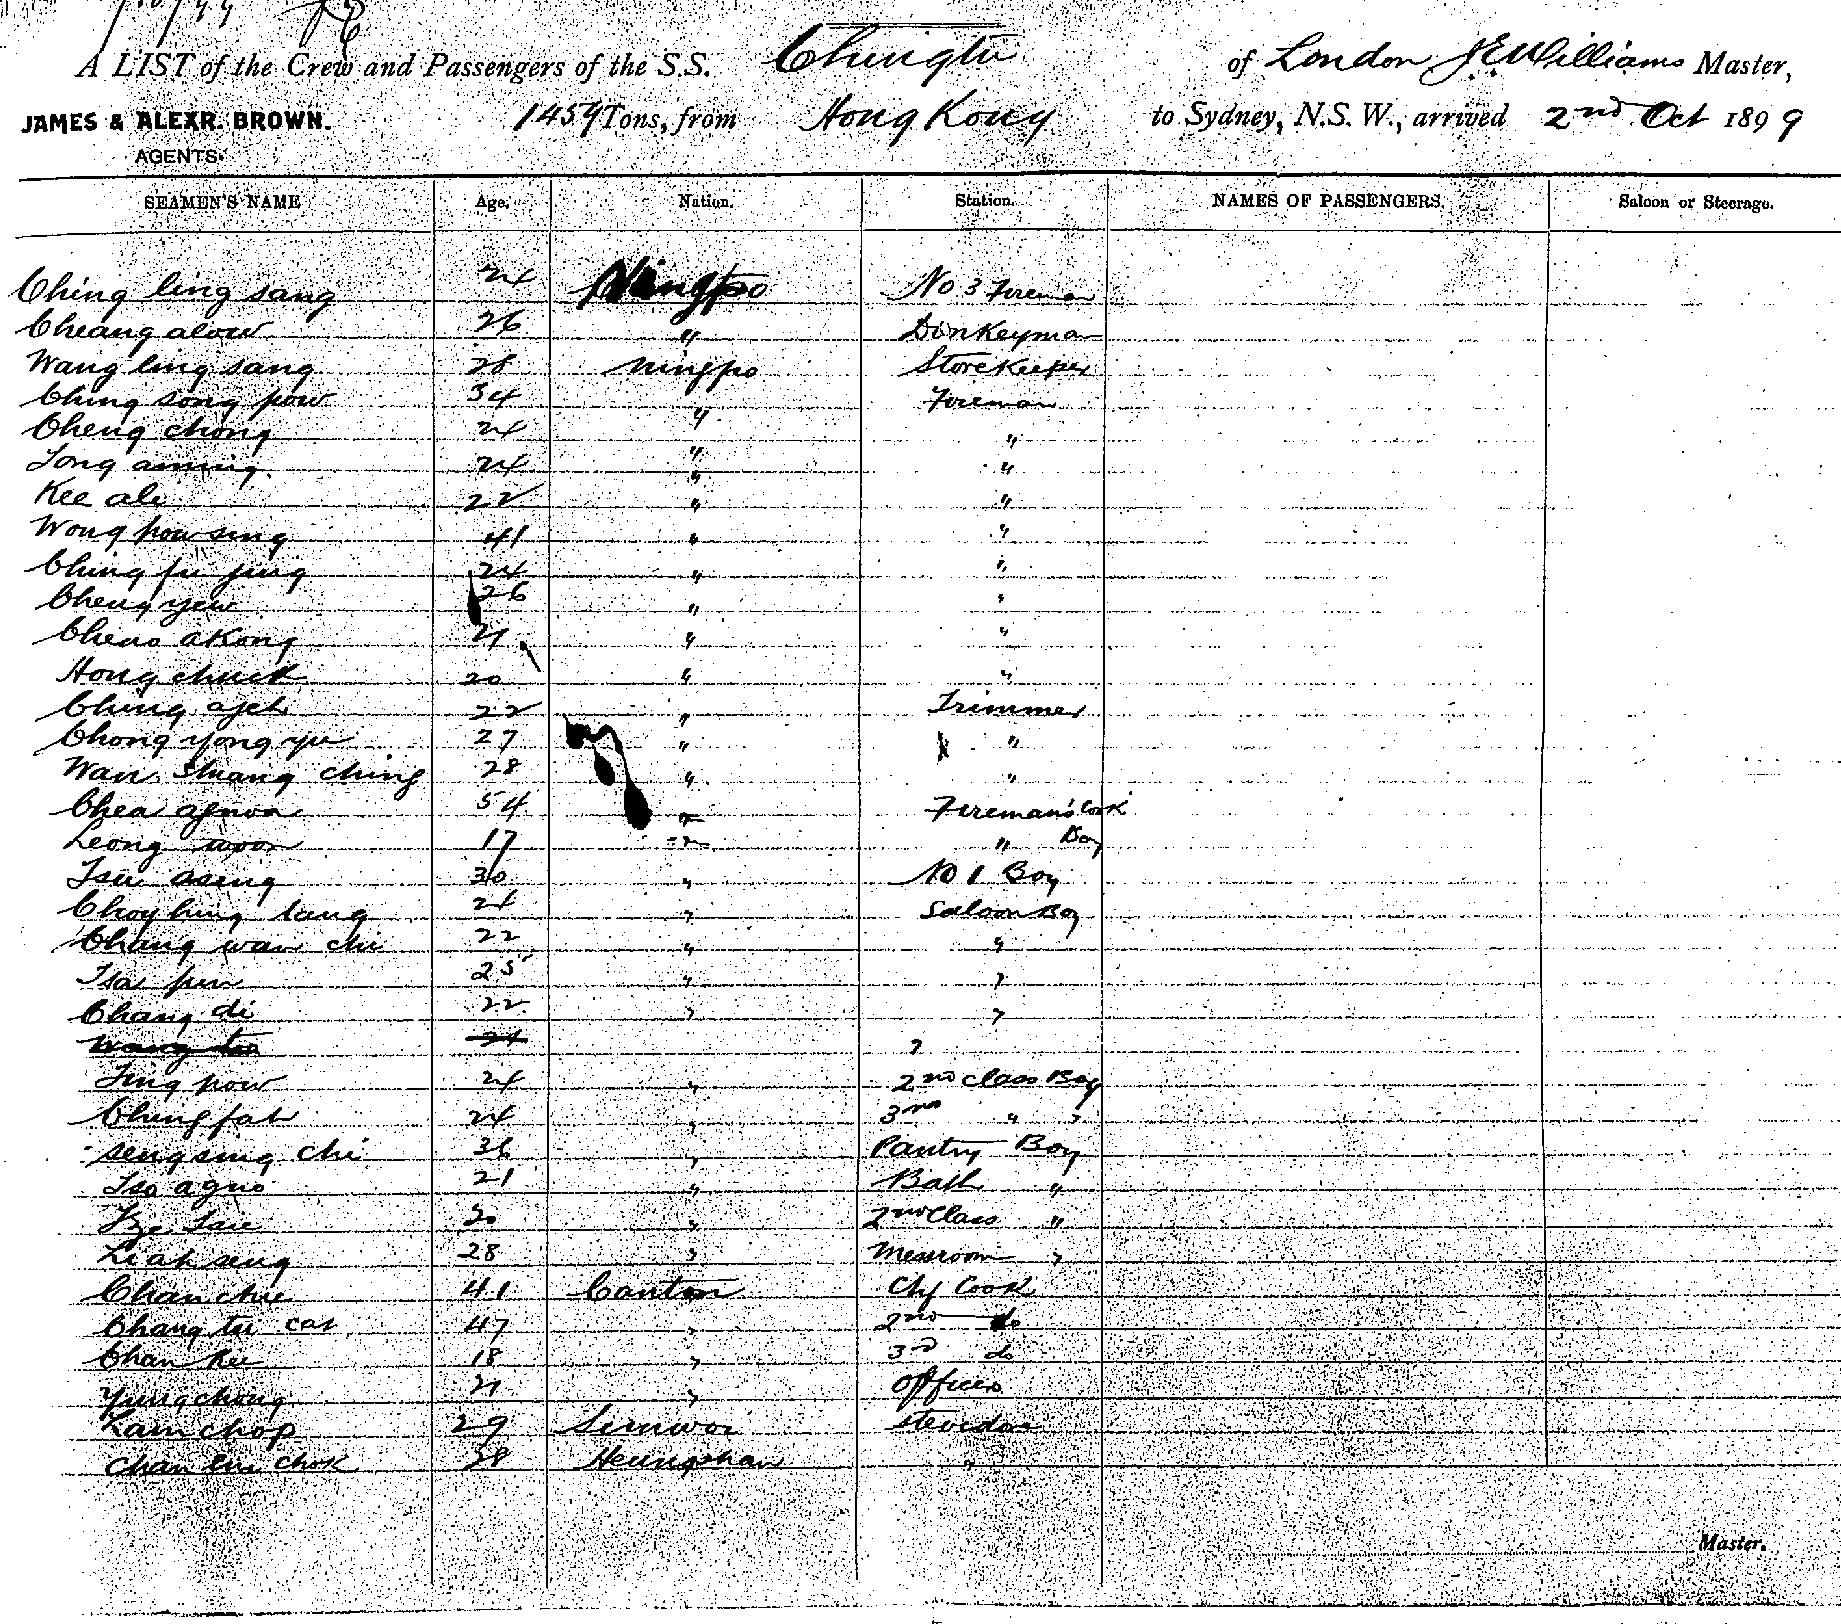 A LIST of the Crew and Passengers of the S.S. Chingtu of London J. E. Williams Master,
JAMES & ALEXR. BROWN. 1459 Tons, from Hong Kong to Sydney, N.S.W., arrived 2nd Oct 1899
AGENTS.
SEAMEN'S NAME Age. Nation. Station. NAMES OF PASSENGERS. Saloon or Steerage.
Ching ling sang 24 Ningpo No 3 Fireman
Cheang alow 26 " Donkeyman
Wang ling sang 28 Ningpo Storekeeper
Ching song pow 34 " Fireman
Cheng chong 24 " "
Tong aming 24 " "
Kee ale 22 " "
Wong pow sing 41 " "
Ching fu jing 24 " "
Cheng yew 26 " "
Cheao akong 21 " "
Hong chuck 20 " "
Ching ajek 22 " Trimmer
Chong yong yu 27 " "
Wan Shang ching 28 " "
Chea 54 " Fireman's Cook
Leong woon 17 " " Boy
Tsu aseng 30 " No 1 Boy
Choy hing tang 24 " Saloon Boy
Chang wan chi 22 " "
Tsa pun 25 " "
Chang di 22 " "
Wong 24 "
Jing pow 24 " 2nd class Boy
Ching fat 24 " 3rd " "
seng sing chi 36 " Pantry Boy
Tso aguo 21 " Bath "
20 " 2nd Class "
Li ah seng 28 " Messroom "
Chan chie 41 Canton Chf Cook
Chang tu cat 47 " 2nd do
Chan Kee 18 " 3rd do
Yung chong 21 " Officers
Lam chop 29 Sunwoi stevedor
Chan chok 38 Heungshan "
Master.